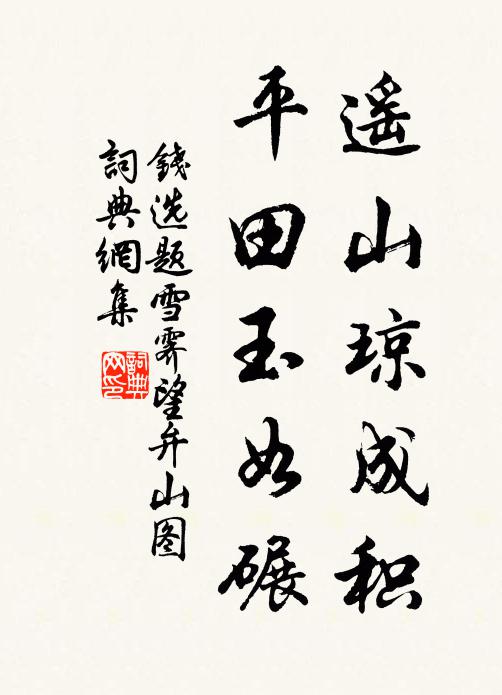 遥山琼成积
平田玉如碾
錢选题雪霁望弁山图
詞典網集
詞典网印